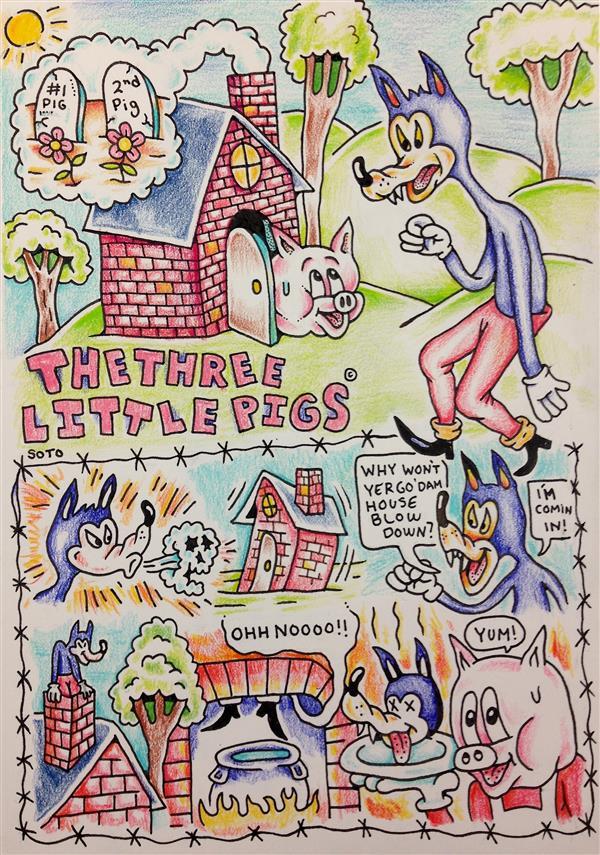 #1
PIG
2nd
Pig
THE THREE
LITTLE PIGS ©
SOTO
WHY WON'T
YER GO'DAM
HOUSE
BLOW
DOWN?
I'M
COMIN
IN!
OHH NOOOO!!
YUM!